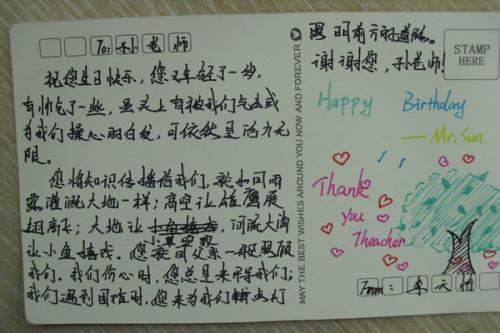 To: 孙老师
祝您生日快乐，您又年轻了一岁，
有帅气了一些，虽头上有被我们气出或
为我们操心的白发，可依然是活力无
限。
您将知识传播给我们，就如同雨
露灌溉大地一样；高空让雄鹰展
翅高飞；大地让小草发芽，河流大海
让小鱼嬉戏。您就同父亲一般照顾
我们。我们伤心时，您总是来哄我们；
我们遇到困难时，您来为我们点灯
照明前方的道路。
谢谢您，孙老师！
STAMP
HERE
Happy Birthday
— Mr. Sun.
Thank
you
Theacher
From: 李天
MAY THE BEST WISHES AROUND YOU NOW AND FOREVER